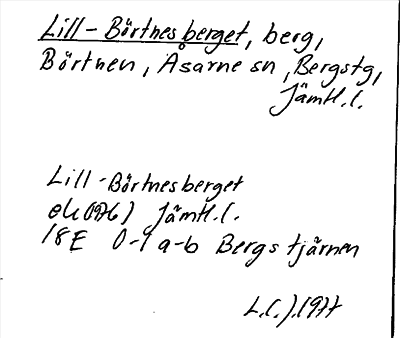 Lill-Börtnesberget, berg,
Börtnen, Åsarne sn, Bergstg,
Jämtl.l.
Lill-Börtnesberget
ek(1976) Jämtl.l.
18E 0-1 a-b Bergstjärnen
1977